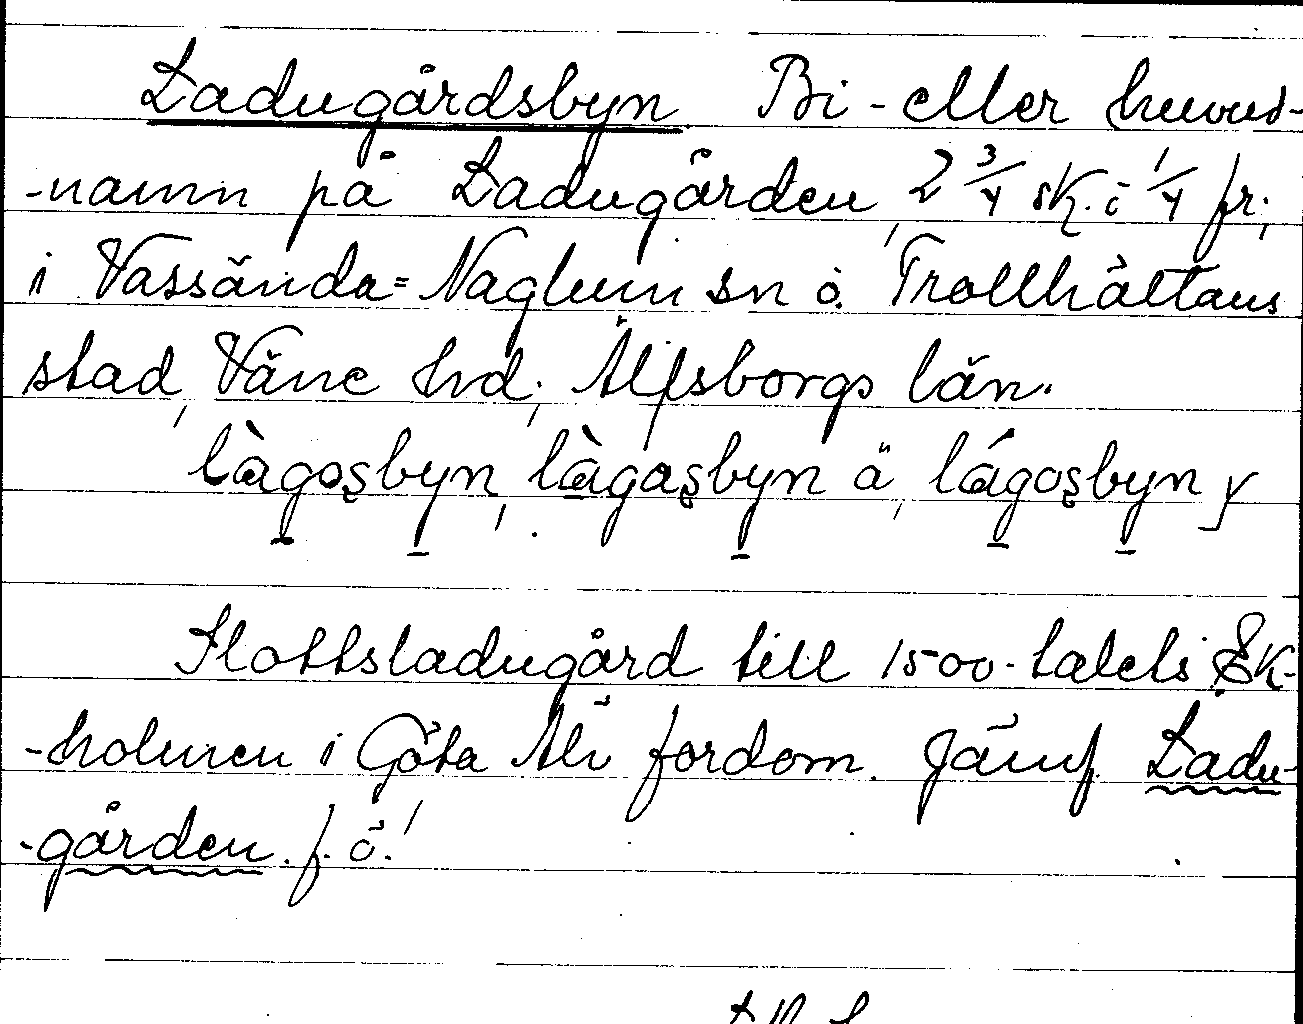 Ladugårdsbyn. Bi- eller huvud-
-namn på Ladugården, 2 3/4 sk. ö 1/4 fr.,
i Vassända=Naglum sn o. Trollhättans
stad, Väne hd, Älfsborgs län.
làgoşbyn, làgaşbyn ä, lágoşbyn y
Slottsladugård till 1500-talets Ek-
-holmen i Göta Älv fordom. Jämf. Ladu-
-gården f. ö.!